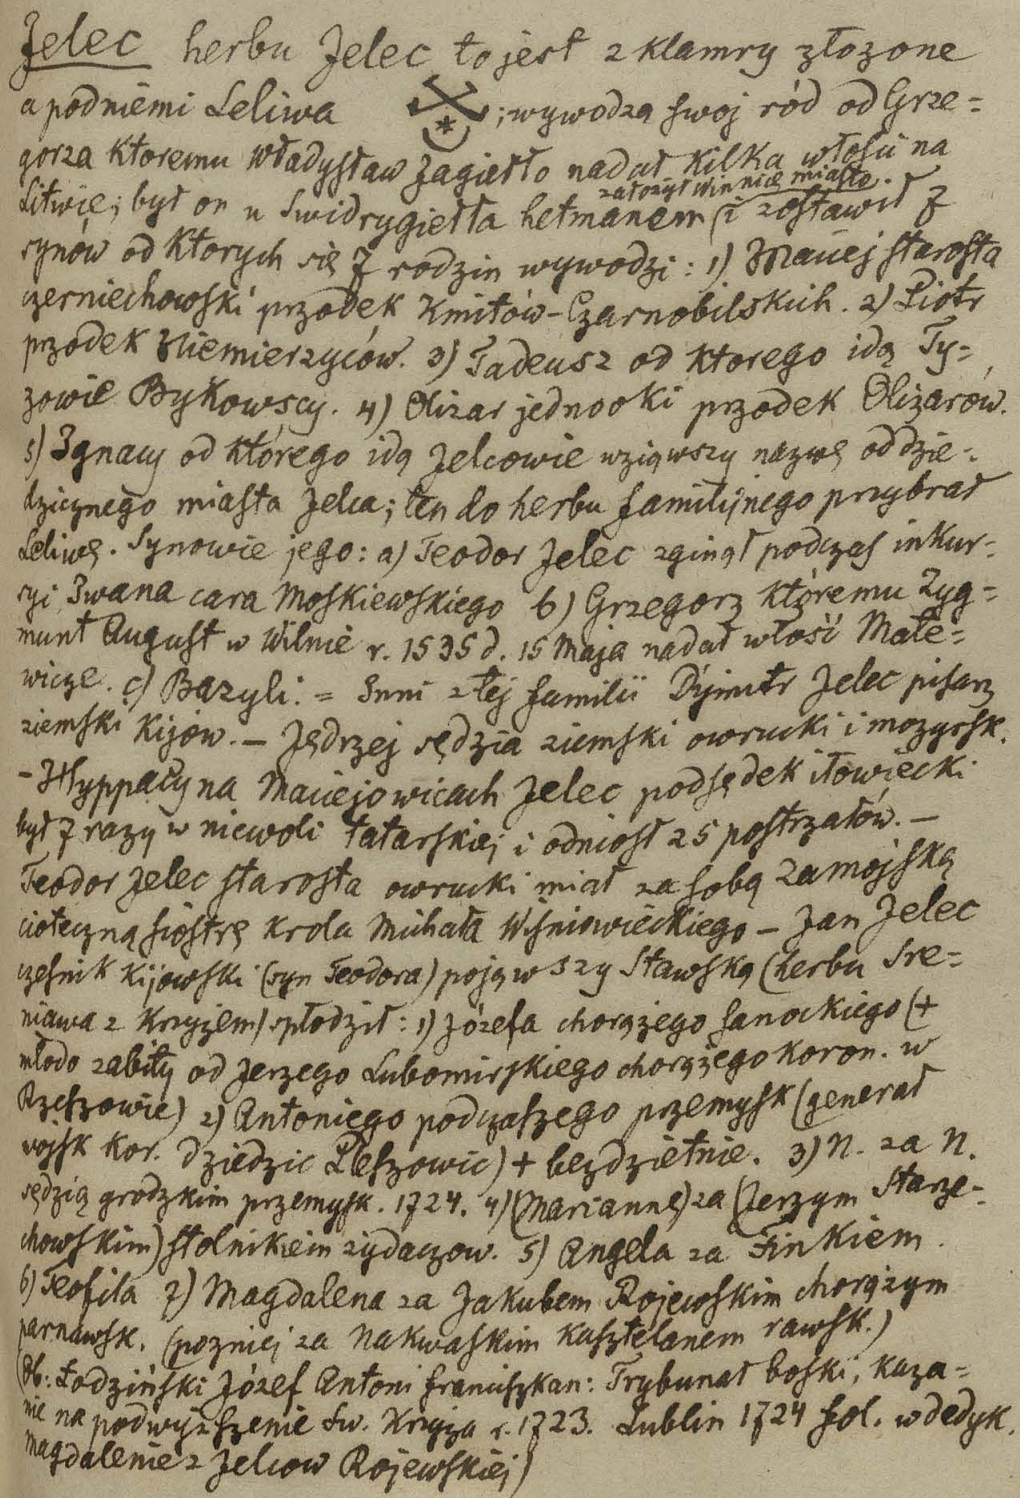 Jelec herbu Jelec to jest 2 klamry złożone
a pod niemi Leliwa ; wywodzą swoj ród od Grze=
gorza któremu Władysław Jagiełło nadał kilka włości na
założył Winnicę miasto.
Litwie; był on u Swidrygiełła hetmanem (i zostawił 7
synów od ktorych się 7 rodzin wywodzi: 1) Maciej starosta
czerniechowski przodek Kmitów-Czarnobilskich. 2) Piotr
przodek Niemierzyców. 3) Tadeusz od ktorego idą Ty=
zowie Bykowscy. 4) Olizar jednooki przodek Olizarów.
5) Ignacy od którego idą Jelcowie wziąwszy nazwę od dzie=
dzicznego miasta Jelca; ten do herbu familijnego przybrał
Leliwę. Synowie jego: a) Teodor Jelec zginął podczas inkur=
syi Iwana cara Moskiewskiego b) Grzegorz któremu Zyg=
munt August w Wilnie r. 1535 d. 15 Maja nadał włość Mate=
wicze. c) Bazyli. = Inni z tej familii Dýmitr Jelec pisarz
ziemski Kijow. — Jędrzej sędzia ziemski owrucki i mozyrsk.
- Hyppacy na Maciejowicach Jelec podsędek iłowiecki
był 7 razy w niewoli tatarskiej i odniosł 25 postrzałów. —
Teodor Jelec starosta owrucki miał za sobą Zamojską
cioteczną siostrę krola Michała Wiśniowieckiego — Jan Jelec
cześnik Kijowski (syn Teodora) pojąwszy Stawską (herbu Sre=
niawa z krzyżem) spłodził: 1) Józefa chorążego sanockiego (+
młodo zabity od Jerzego Lubomirskiego chorążego koron. w
Rzeszowie) 2) Antoniego podczaszego przemysk (generał
wojsk kor. dziedzic Leszowic) + bezdzietnie. 3) N. za N.
sędzią grodzkim przemysk. 1724. 4) (Mariannę) za (Jerzym Starze=
chowskim) stolnikiem żydaczow. 5) Angela za Finkiem
6) Teofila 7) Magdalena za Jakubem Rojewskim chorążym
parnawsk. (pozniej za Nakwaskim kasztelanem rawsk.)
(Ob: Łodziński Józef Antoni franciszkan: Trybunał boski, kaza=
nie na podwyższenie Św. Krzyża r. 1723. Lublin 1724 fol. w dedyk.
Magdalenie z Jelcow Rojewskiej)